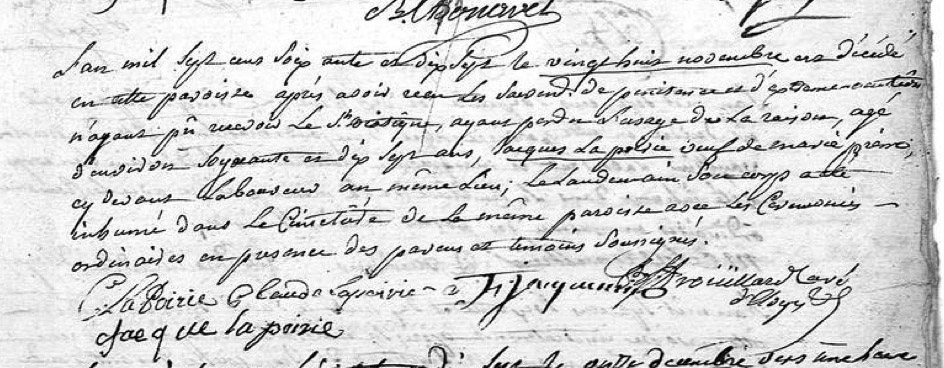 L'an mil sept cens soixante et dix sept le vingt huit novembre est décédé
en cette paroisse après avoir reçu les sacrem.ts de pénitence et d'extrême onction
n'ayant pû recevoir le S.t viatique, ayant perdu l'usage de la raison, agé
d'environ soyxante et dix sept ans, Jacques La poirie veuf de marie
cy devant Laboureur au même Lieu; Le Lendemain son corps a été
inhumé dans Le Cimetière de La même paroisse avec Les Cérémonies
ordinaires en presence des parens et temoins soussignés.
C. La Poirie Claude Lapoirie F Jacquemin Drouillard Curé
Jacque la poirie
le onze decembre vers une heure